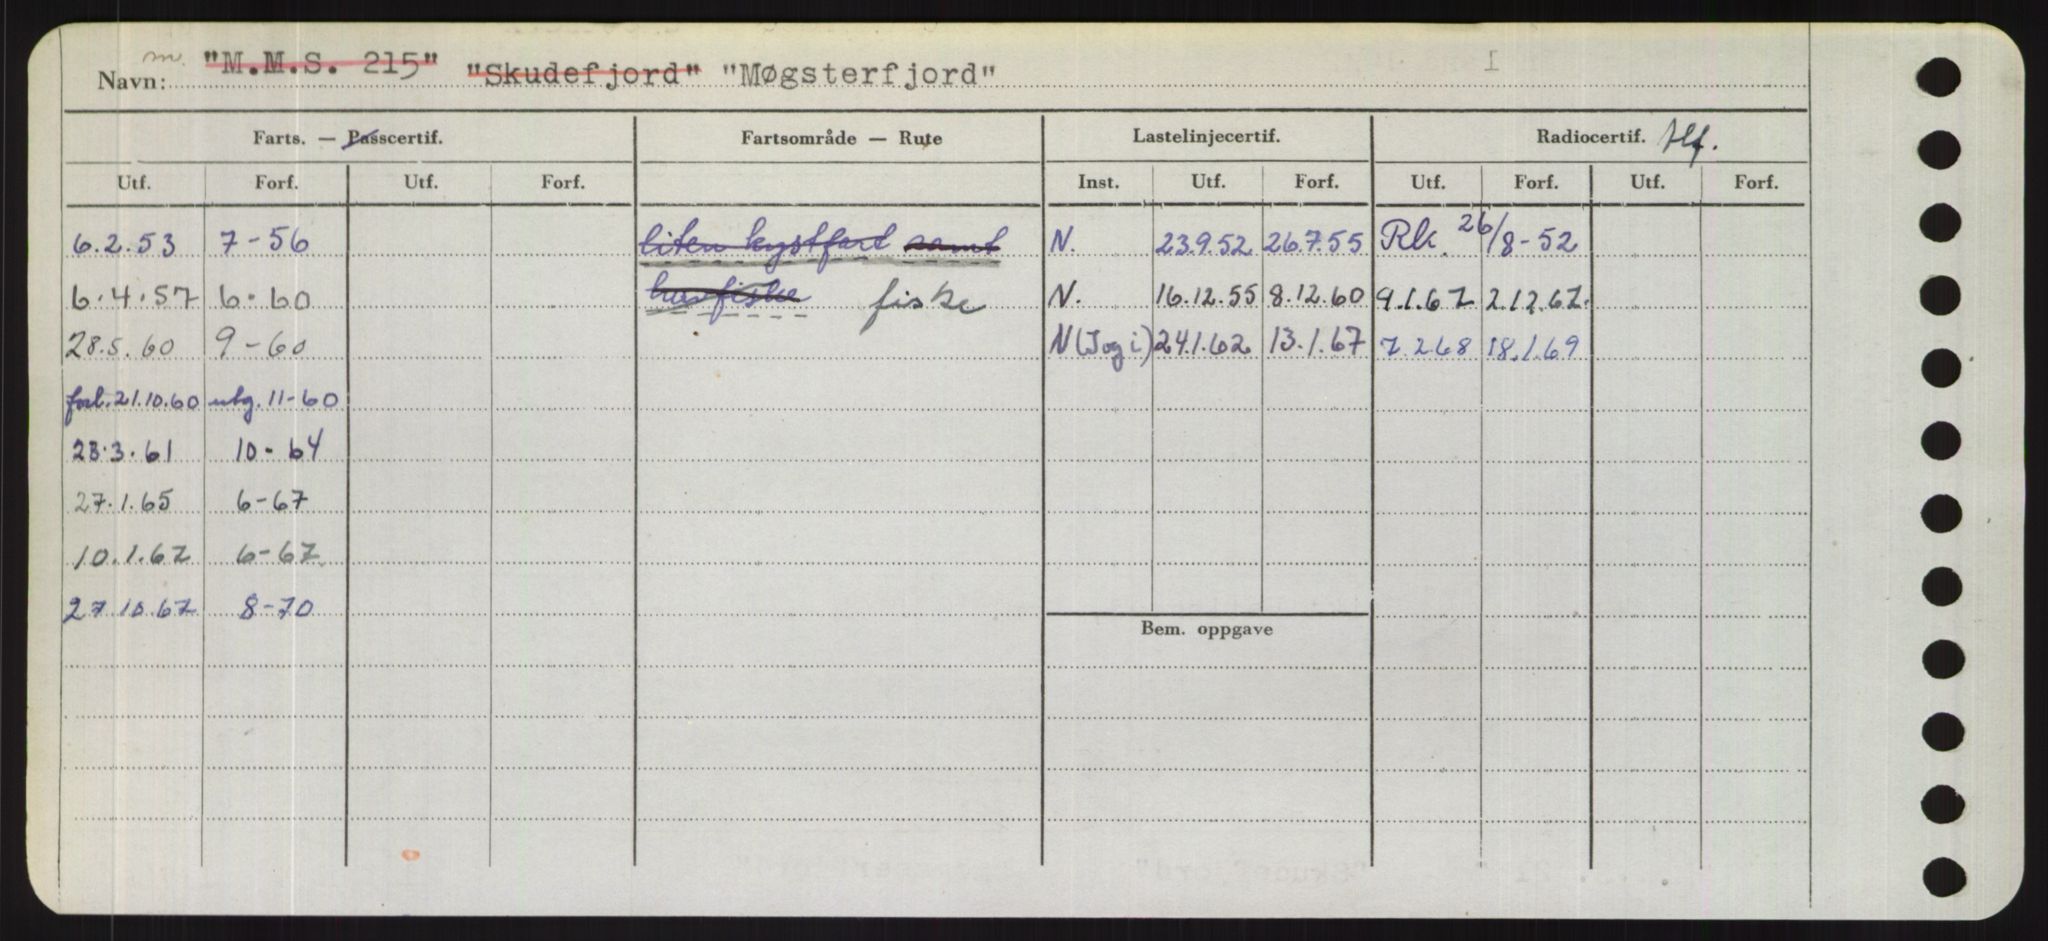 m. "M.M.S. 215" "Skudefjord" "Møgsterfjord" I
Navn:
Farts. — Passcertif. Fartsområde — Rute Lastelinjecertif. Radiocertif. tlf.
Utf. Forf. Utf. Forf. Inst. Utf. Forf. Utf. Forf. Utf. Forf.
6.2.53 7-56 liten kystfart samt N. 23.9.52 26.7.55 Rk. 26/8-52
6.4.57 6-60 fiske N. 16.12.55 8.12.60 9.1.67 2.12.67.
28.5.60 9-60 N(Jog i) 24.1.62 13.1.67 7.2.68 18.1.69
forl. 21.10.60 utg. 11-60
23.3.61 10-64
27.1.65 6-67
10.1.67 6-67
27.10.67 8-70
Bem. oppgave